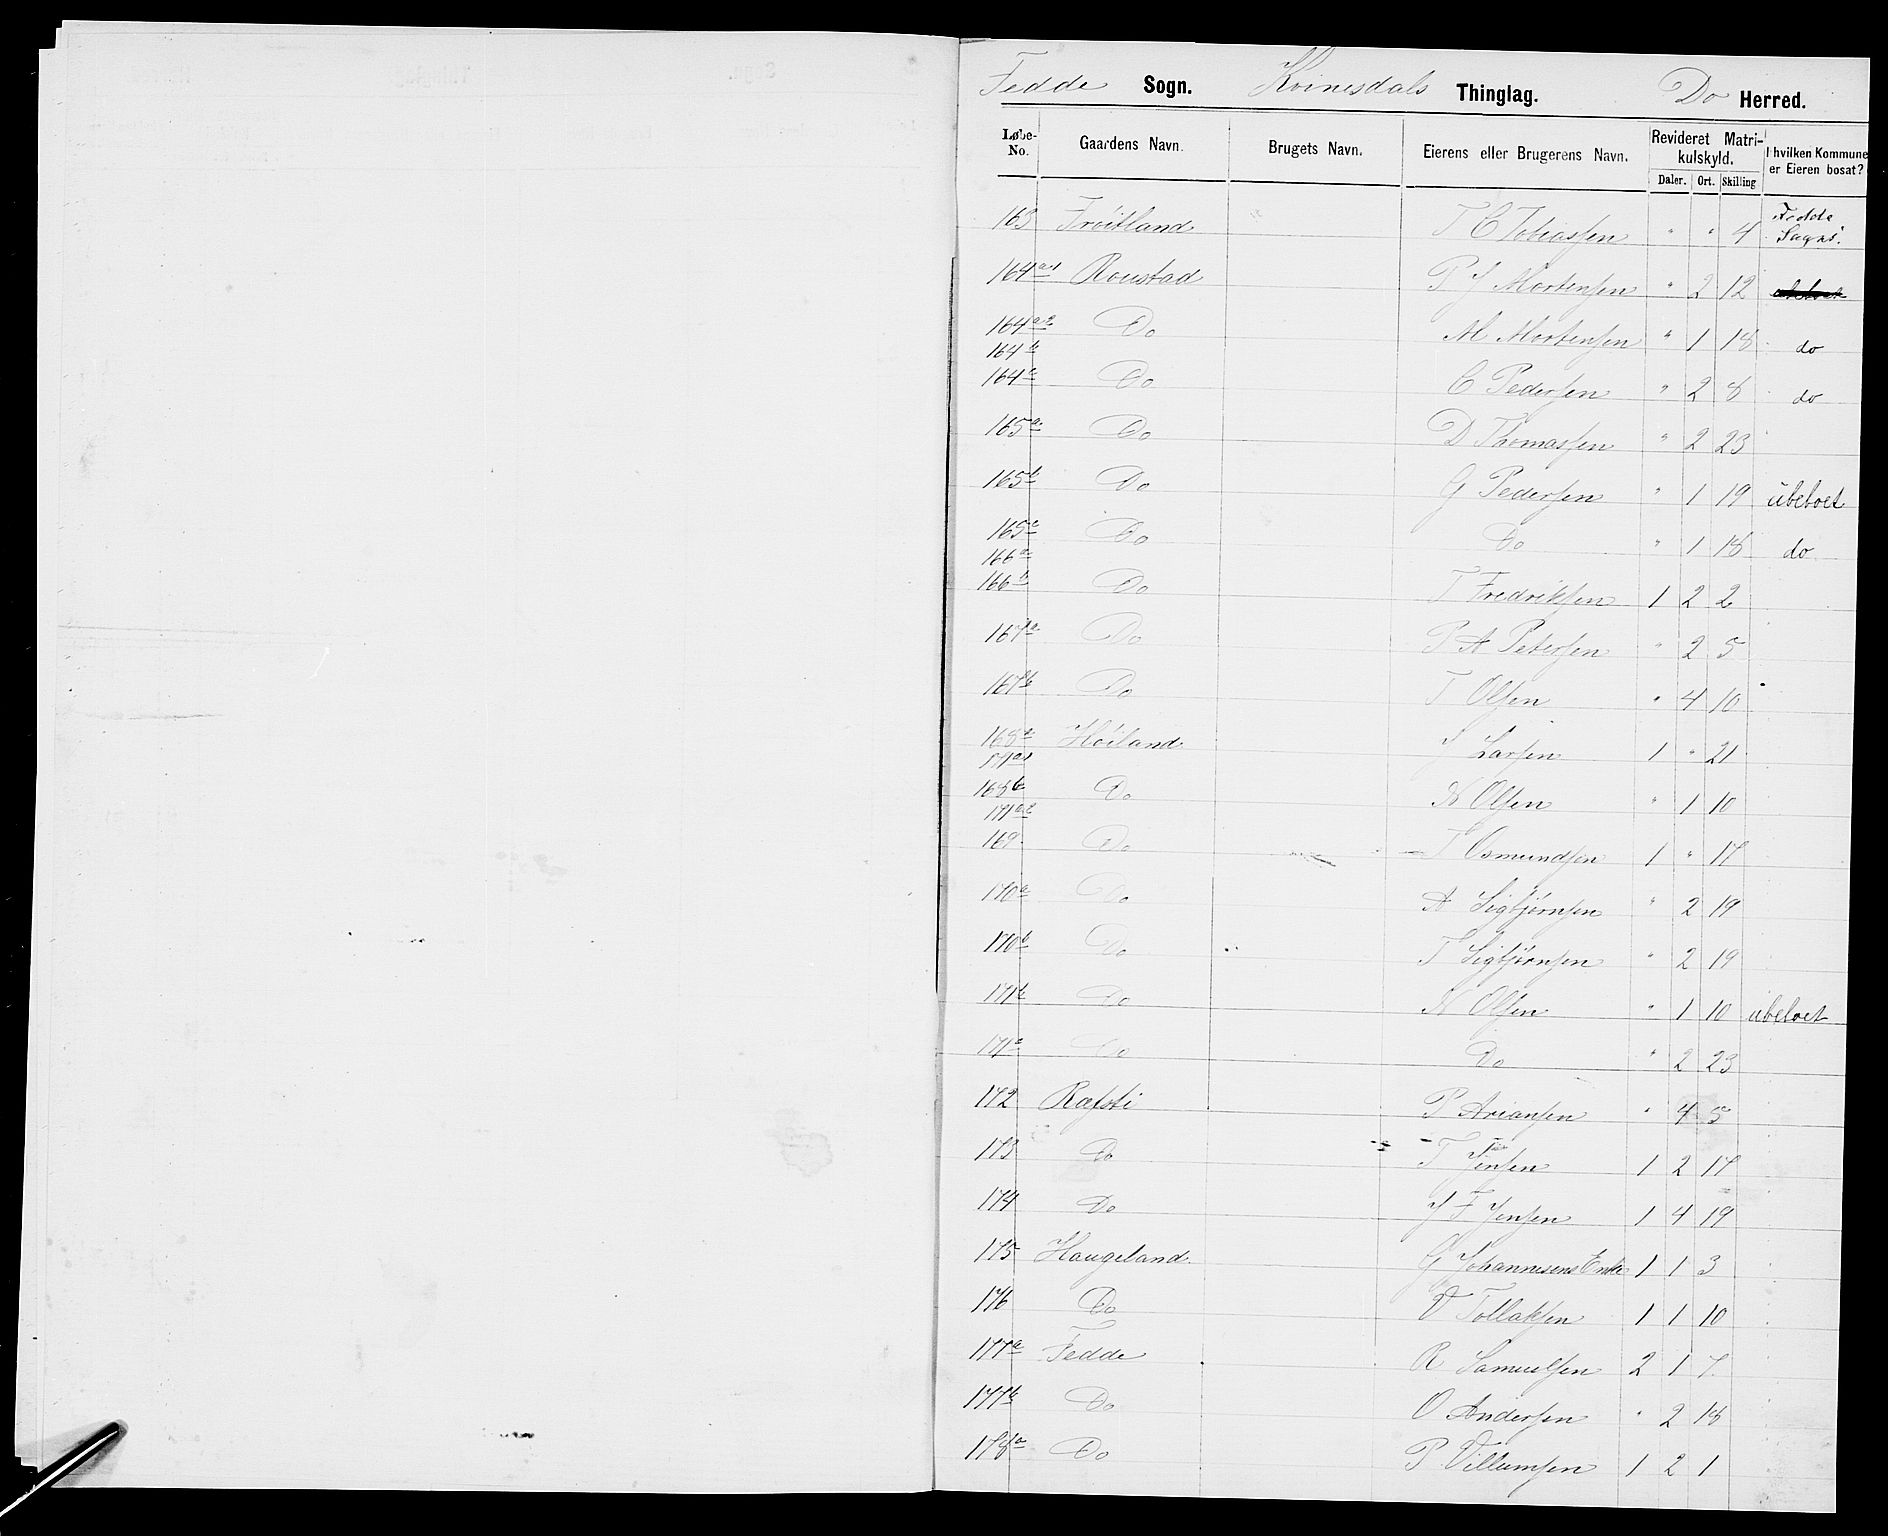 Fedde Sogn. Kvinesdals Thinglag. Do Herred.
Løbe-No. Gaardens Navn. Brugets Navn. Eierens eller Brugerens Navn. Revideret Matrikulskyld. I hvilken Kommune er Eieren bosat?
Daler. Ort. Skilling
163 Frøitland T C Tobiassen " " 4 Fedde Sogns.
164 a1 Roustad P J Mortensen " 2 12
164 a2 164 b Do M Mortensen " 1 18 do
164 c Do C Pedersen " 2 8 do
165 a Do D Thomassen " 2 23
165 b Do G Pedersen " 1 19 ubeboet
165 c 166 a Do Do " 1 18 do
166 b Do T Fredriksen 1 2 2
167 a Do P A Petersen " 2 5
167 b Do T Olsen " 4 10
168 a 171 a1 Høiland J Larsen 1 " 21
168 b 171 a2 Do N Olsen " 1 10
169 Do T Osmundsen 1 " 17
170 a Do A Sigbjørnsen " 2 19
170 b Do T Sigbjørnsen " 2 19
171 b Do N Olsen " 1 10 ubeboet
171 c Do Do " 2 23
172 Rafsti P Ariansen " 4 5
173 Do T Jensen 1 2 17
174 Do J F Jensen 1 4 19
175 Haugeland G Johannesens Enke 1 1 3
176 Do V Tollaksen 1 1 10
177 a Fedde R Samuelsen 2 1 7
177 b Do O Andersen " 2 18
178 a Do P Villumsen 1 2 1